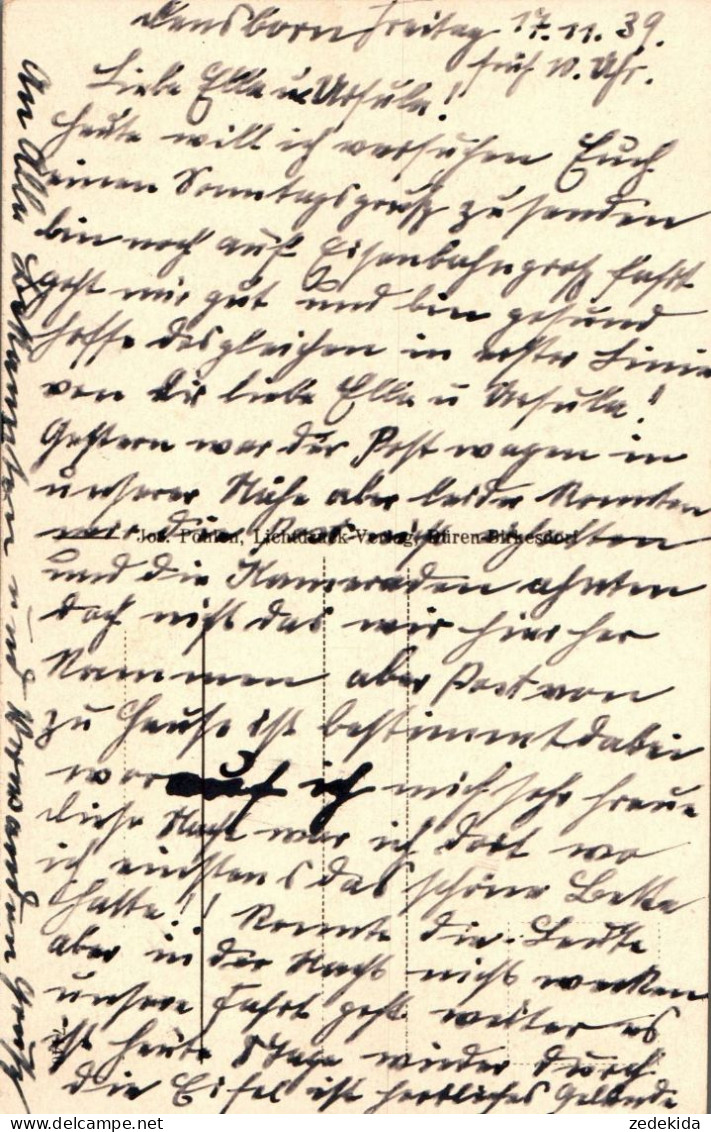 Densborn Freitag 17.11.39.
früh 10. Uhr.
Liebe Ella u Ursula!
Heute will ich versuchen Euch
einen Sonntagsgruß zu senden
bin noch auf Eisenbahngroßfahrt
geht mir gut und bin gesund
hoffe desgleichen in erster Linie
von Dir liebe Ella u Ursula!
Gestern war der Postwagen in
unserer Nähe aber leider konnten
wir die Post nicht
Jos. Pohlen, Lichtdruck-Verlag, Düren-Birkesdorf
und die Kameraden ahnten
doch nicht das wir hier her
kammen aber Post von
zu Hause ist bestimmt dabei
worauf ich mich sehr freue
diese Nacht war ich dort wo
ich einstens das schöne Bette
hatte!! konnte die Leute
aber in der Nacht nicht wecken
unsere Fahrt geht weiter es
ist heute 8 Tage wieder durch
die Eifel ist herrliches Gelände
An Alle Bekannten und Verwandten Gruß
zedekida